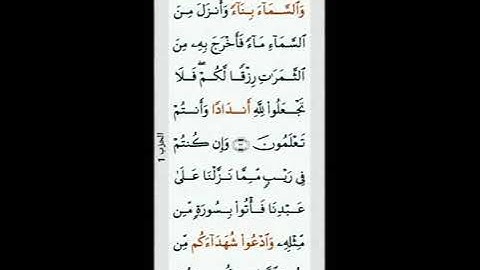 وَٱلسَّمَآءَ بِنَآءً وَأَنزَلَ مِنَ
ٱلسَّمَآءِ مَآءً فَأَخْرَجَ بِهِۦ مِنَ
ٱلثَّمَرَٰتِ رِزْقًا لَّكُمْ ۖ فَلَا
تَجْعَلُوا۟ لِلَّهِ أَندَادًا وَأَنتُمْ
تَعْلَمُونَ ۝ وَإِن كُنتُمْ
فِى رَيْبٍ مِّمَّا نَزَّلْنَا عَلَىٰ
عَبْدِنَا فَأْتُوا۟ بِسُورَةٍ مِّن
مِّثْلِهِۦ وَٱدْعُوا۟ شُهَدَآءَكُم مِّن
الحزب 1